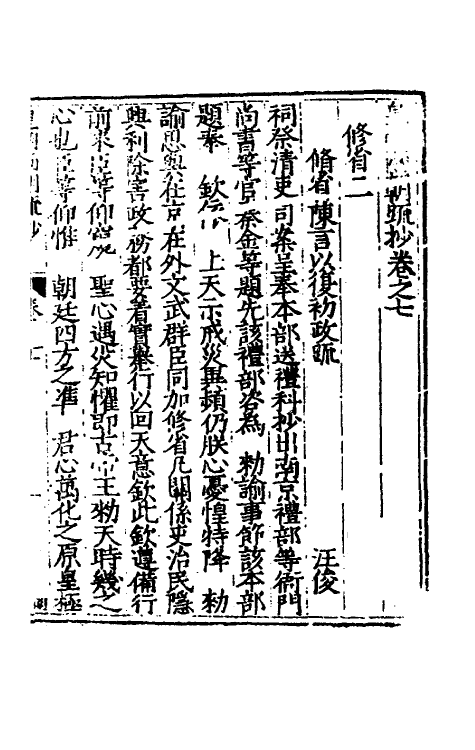 朝䟽抄卷之七
修省二
脩省陳言以復初政䟽 汪俊
祠祭清吏司案呈奉本部送禮科抄出南京禮部等衙門
尚書等官 金等題先該禮部咨為 勑諭事節該本部
題奉 欽 上天示戒災異頻仍朕心憂惶特降 勑
諭思與在京在外文武群臣同加修省凡關係吏治民隱
興利除害政務都要着實舉行以回天意欽此欽遵備行
前來臣等仰 聖心遇災知懼即古帝王勑天時幾之
心也臣等仰惟 朝廷四方之凖 君心萬化之原皇極